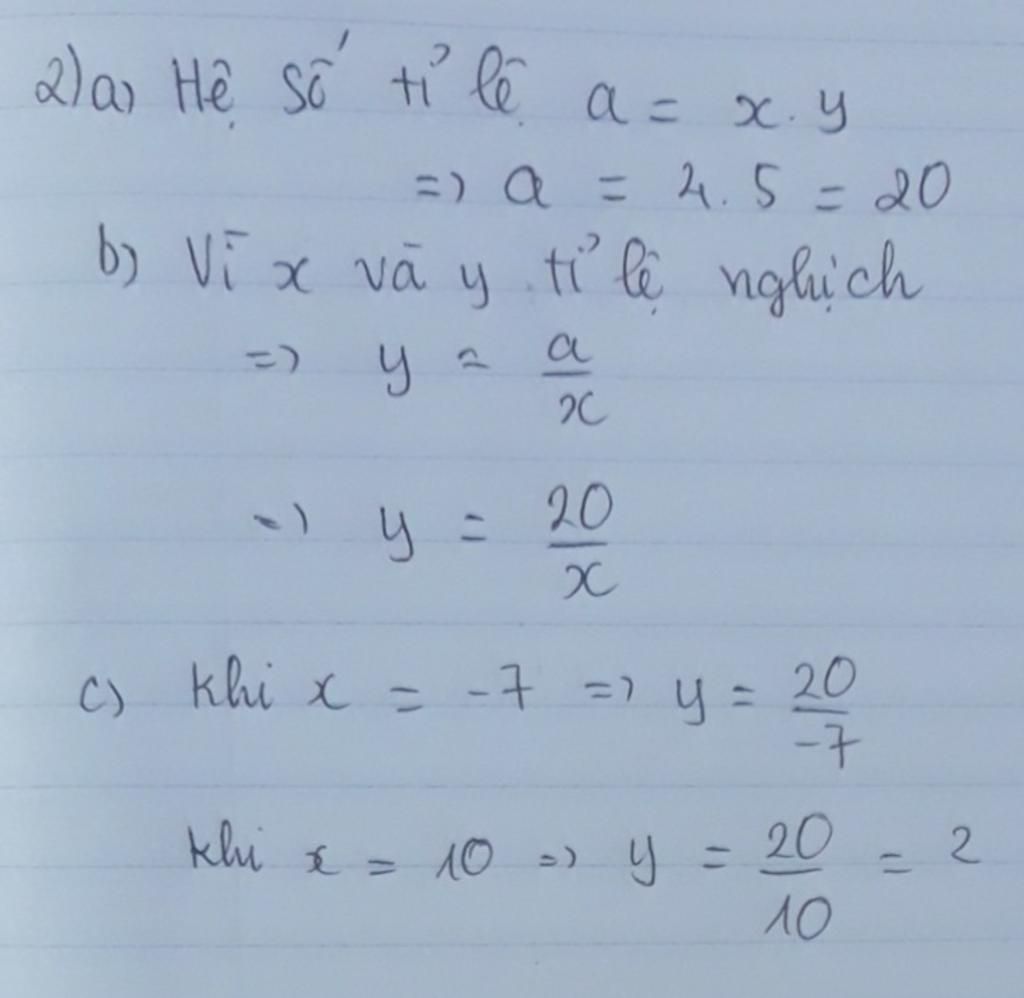 2) a) Hệ số tỉ lệ a = x . y
=> a = 4 . 5 = 20
b) Vì x và y tỉ lệ nghịch
=> y = a/x
=> y = 20/x
c) khi x = -7 => y = 20/-7
khi x = 10 => y = 20/10 = 2